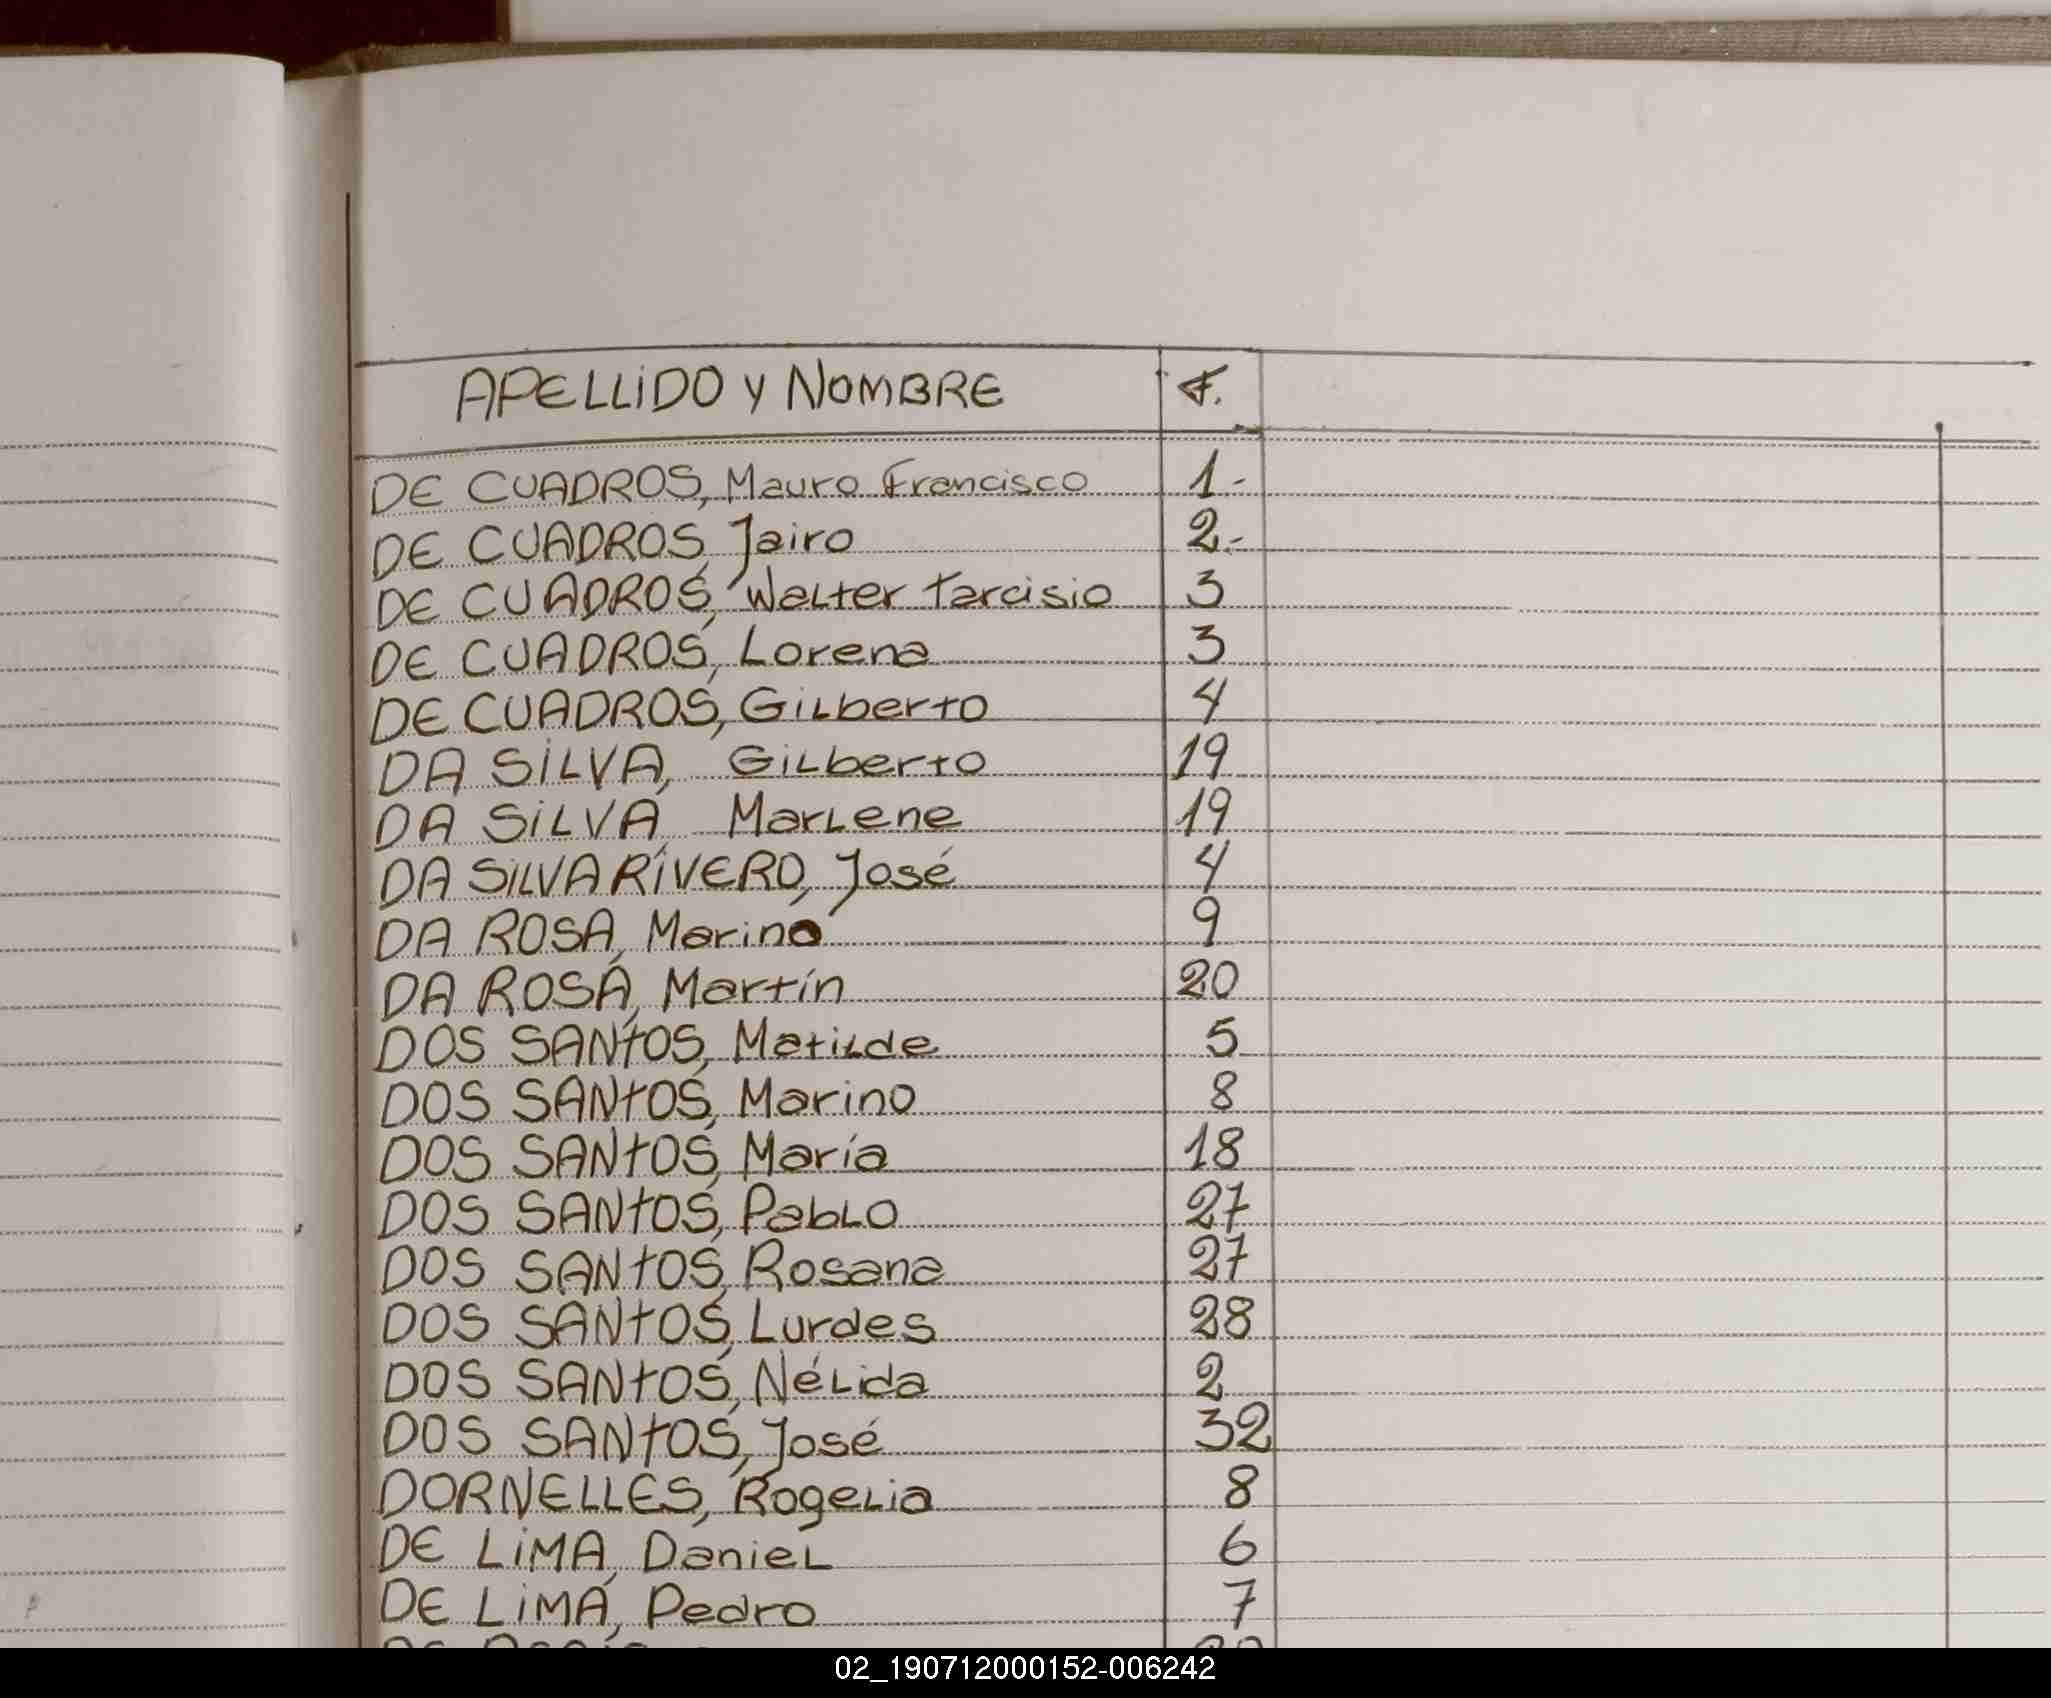 APELLIDO Y NOMBRE F.
DE CUADROS, Mauro Francisco 1-
DE CUADROS, Jairo 2.-
DE CUADROS, Walter Tarcisio 3
DE CUADROS, Lorena 3
DE CUADROS, Gilberto 4
DA SILVA, Gilberto 19
DA SILVA, Marlene 19
DA SILVA RIVERO, José 4
DA ROSA, Marino 9
DA ROSA, Martín 20
DOS SANTOS, Matilde 5
DOS SANTOS, Marino 8
DOS SANTOS, María 18
DOS SANTOS, Pablo 27
DOS SANTOS, Rosana 27
DOS SANTOS, Lurdes 28
DOS SANTOS, Nélida 2
DOS SANTOS, José 32
DORNELLES, Rogelia 8
DE LIMA, Daniel 6
DE LIMA, Pedro 7
02_190712000152-006242